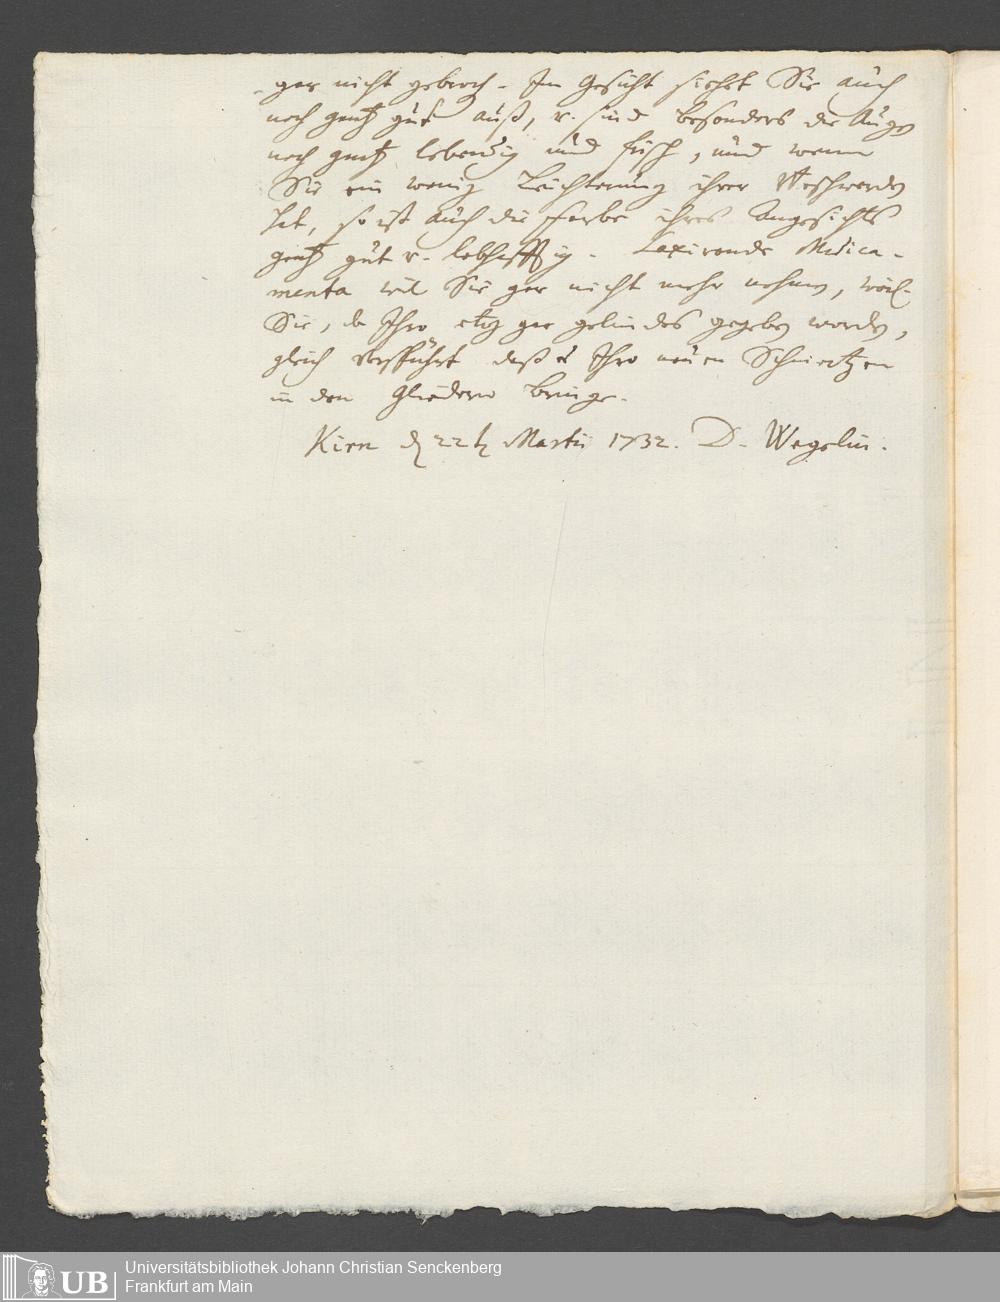 gar nicht gebroch. Im Gesicht siehet Sie auch
noch gantz gut auß, v. sind besonders die Augen
noch gantz lebendig und frisch, und wenn
Sie ein wenig Leichterung ihrer Beschwerden
hat, so ist auch die Farbe ihres Angesichts
gantz gut v. lebhafftig. Laxirende Medica-
menta will Sie gar nicht mehr nehmen, weil
Sie, da Ihro etwz gar gelindes gegeben worden,
gleich verspührt daß es Ihro neuen Schmertzen
in den Gliedern bringe.
Kirn d 22t Martii 1732. D. Wegelin.
Universitätsbibliothek Johann Christian Senckenberg
Frankfurt am Main
UB